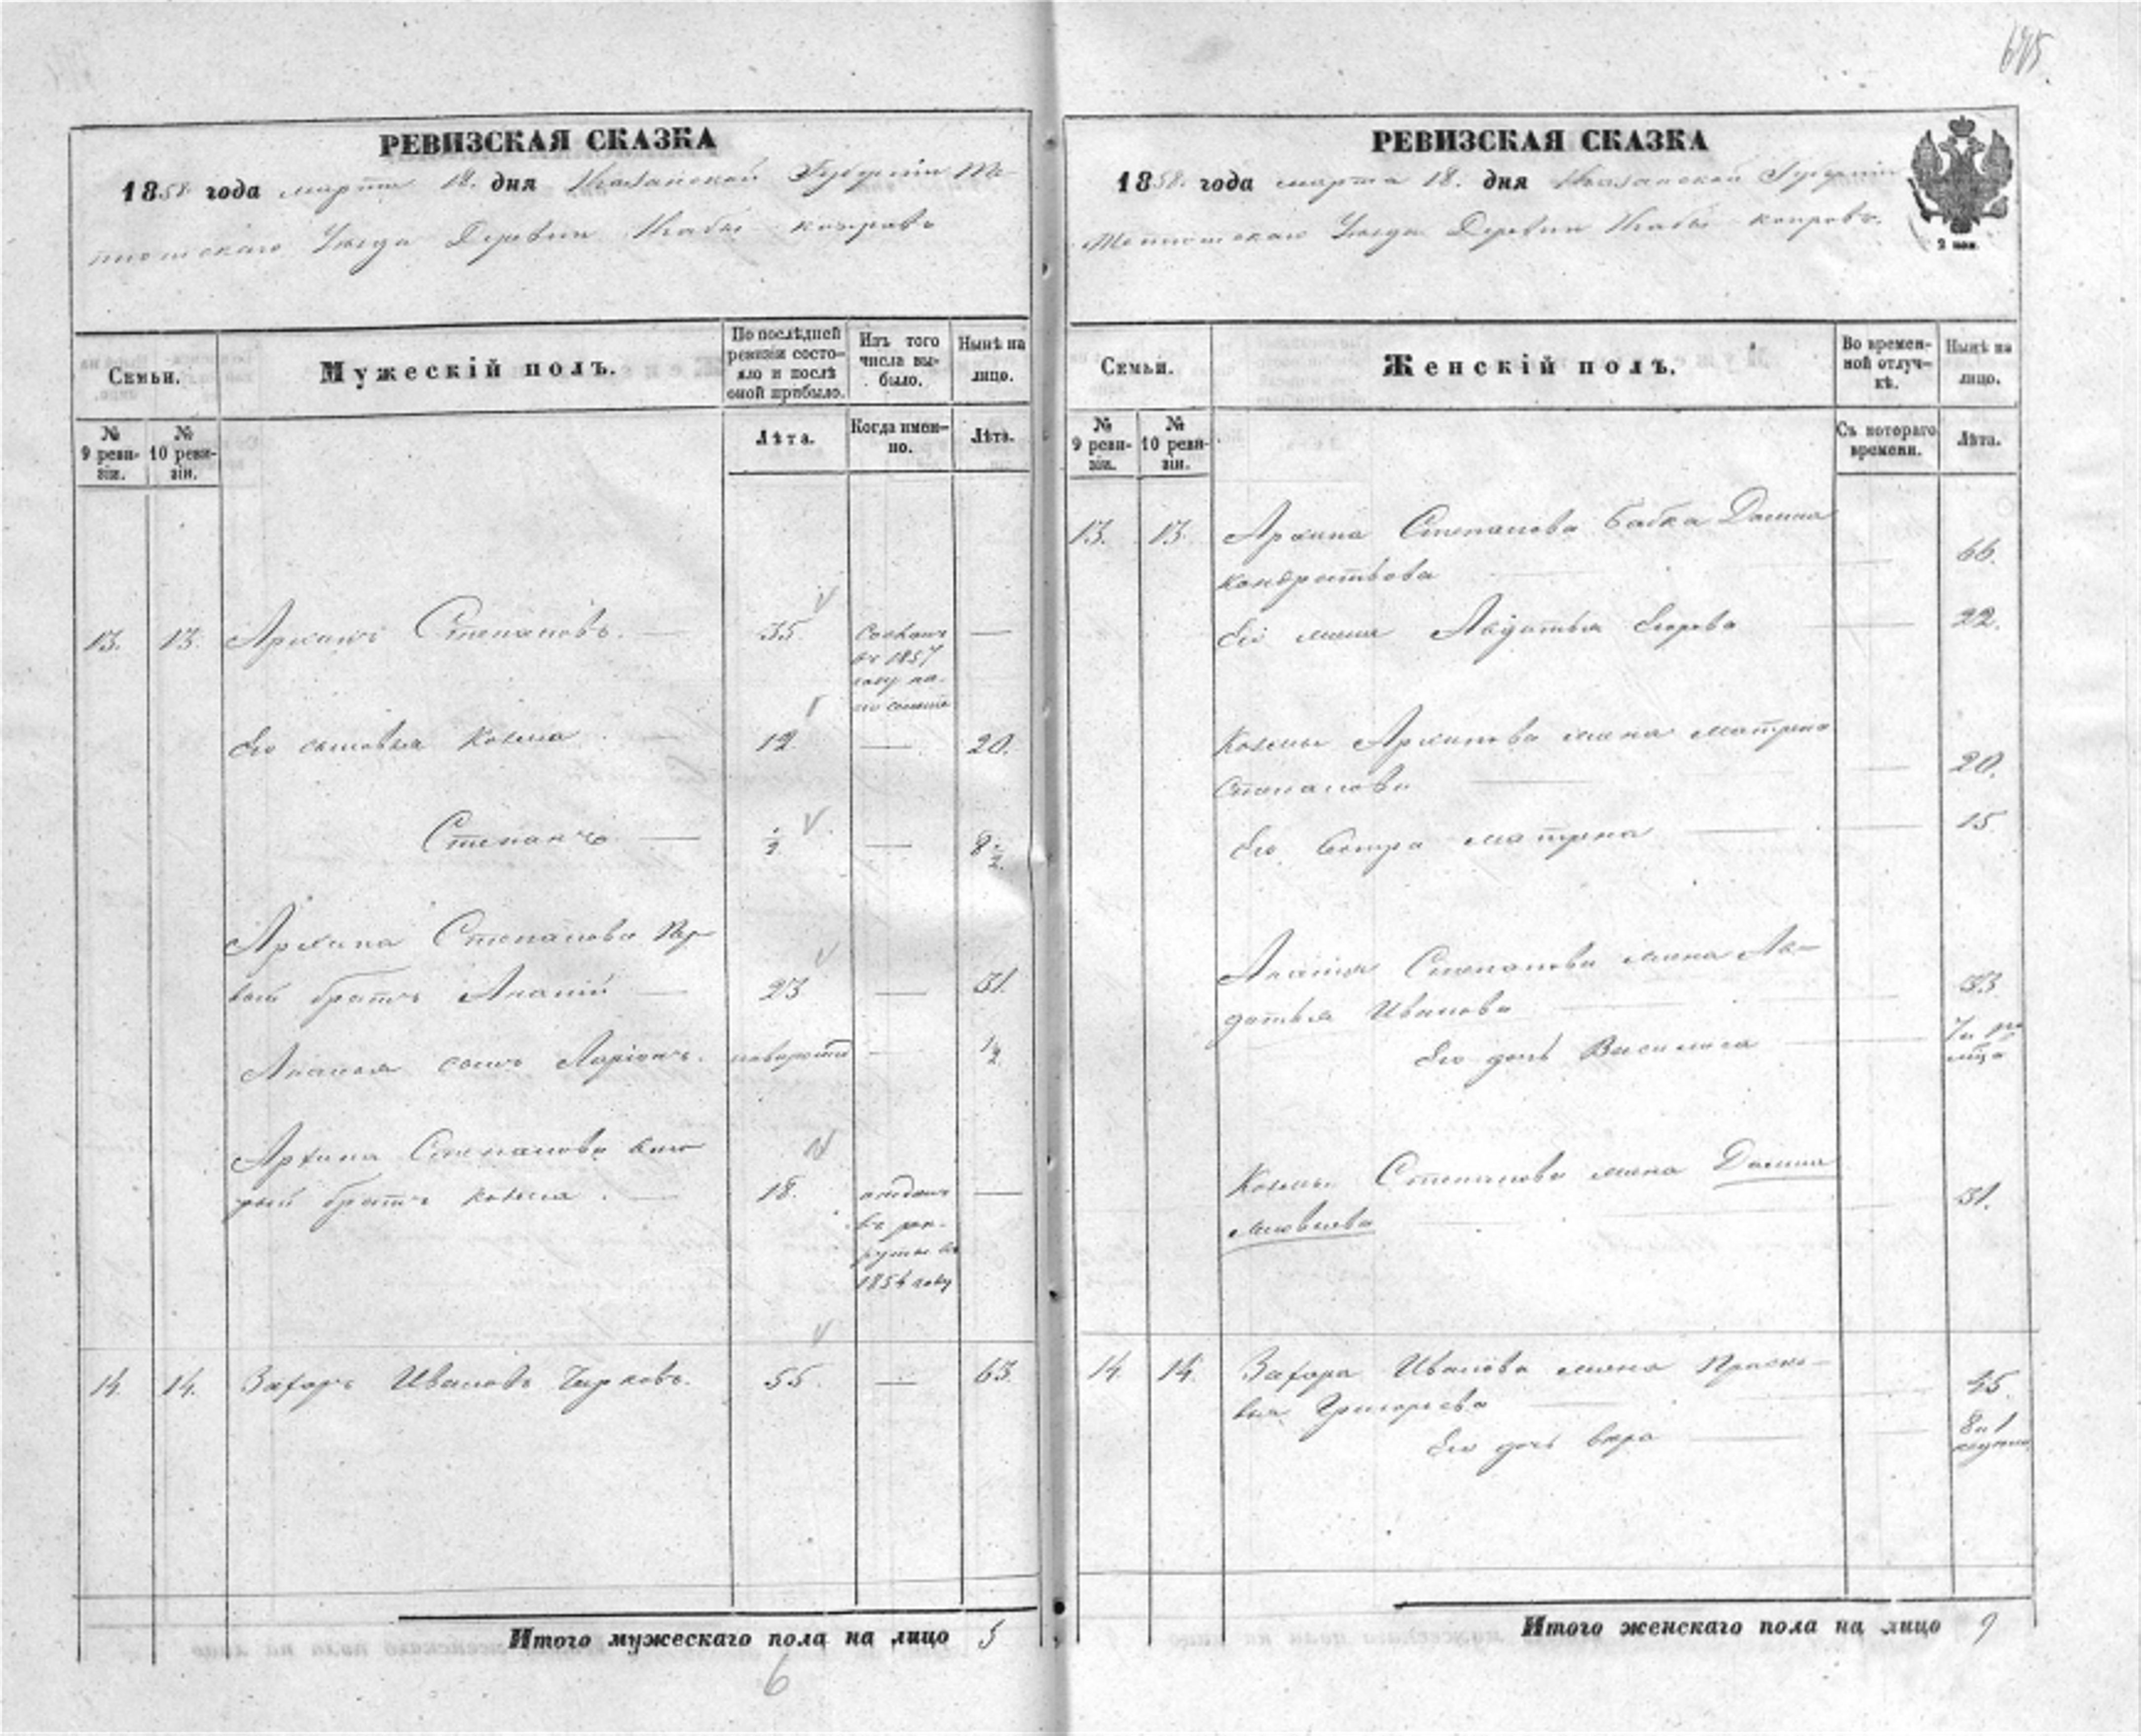 РЕВИЗСКАЯ СКАЗКА
1858 года марта 18. дня Казанской Губерніи Те-
тюшскаго Уѣзда Деревни
Семьи.
Мужескій полъ.
По послѣдней ревизіи состояло и послѣ оной прибыло.
Изъ того числа выбыло.
Нынѣ на лицо.
№ 9 ревизіи.
№ 10 ревизіи.
Лѣта.
Когда именно.
Лѣта.
13. 13. Архипъ Степановъ. 35.
въ 1857
году
Его сыновья Козма 12. 20.
Степанъ 1/2 8 1/2.
Архипа Степанова пер-
вый братъ Ананій 23 31.
Ананья сынъ Ларіонъ. 1/2
Архипа Степанова вто-
рый братъ Козма. 18. отданъ
въ рек-
руты въ
году
14. 14. Захаръ Ивановъ Чирковъ. 55. 63.
Итого мужескаго пола на лицо 5
6
РЕВИЗСКАЯ СКАЗКА
1858. года марта 18. дня Казанской Губерніи
Тетюшскаго Уѣзда Деревни
2 коп.
Семьи.
Женскій полъ.
Во временной отлучкѣ.
Нынѣ на лицо.
№ 9 ревизіи.
№ 10 ревизіи.
Съ котораго времени.
Лѣта.
13. 13. Архипа Степанова
Кондратьева 66.
Его жена Егорова 22.
Козмы Архипова жена Матрена
Степанова 20.
Его сестра Матрена 15
Ананья Степанова жена Ав-
дотья Ивановa 33
Его дочь Василиса
Козмы Степанова жена
Яковлева 31.
14. 14. Захара Иванова жена Праско-
вья Григорьева 45.
Его дочь Вѣра
Итого женскаго пола на лицо 9